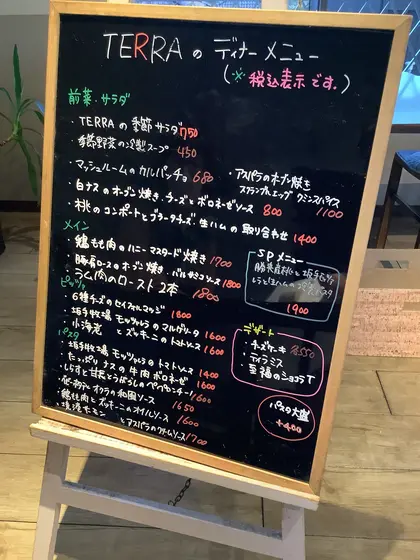 TERRAの ディナーメニュー
(※税込表示です。)
前菜・サラダ
・TERRAの季節サラダ 750
・季節野菜の冷製スープ 450
・マッシュルームのカルパッチョ 680
・アスパラのオーブン焼き
スクランブルエッグ クミンスパイス 1100
・白ナスのオーブン焼き・チーズとボロネーゼソース 800
・桃のコンポートとブラータチーズ、生ハムの取り合せ 1400
メイン
・鶏もも肉のハニーマスタード焼き 1700
・豚肩ロースのオーブン焼き・バルサミコソース 1800
・ラム肉のロースト2本 1800
SPメニュー
1900
ピッツァ
・6種チーズの 1800
・坂手牧場 モッツァレラのマルゲリータ 1600
・小海老とズッキーニのトマトソース 1600
パスタ
・坂手牧場 モッツァレラのトマトソース 1400
・たっぷりナスの牛肉ボロネーゼ 1600
・しらすと甘長とうがらしのペペロンチーノ 1600
オクラの和風ソース 1650
・鶏もも肉とズッキーニのオイルソース 1600
とアスパラのクリームソース 1700
デザート
・チーズケーキ 550
・ティラミス
・至福のショコラT
パスタ大盛
+400